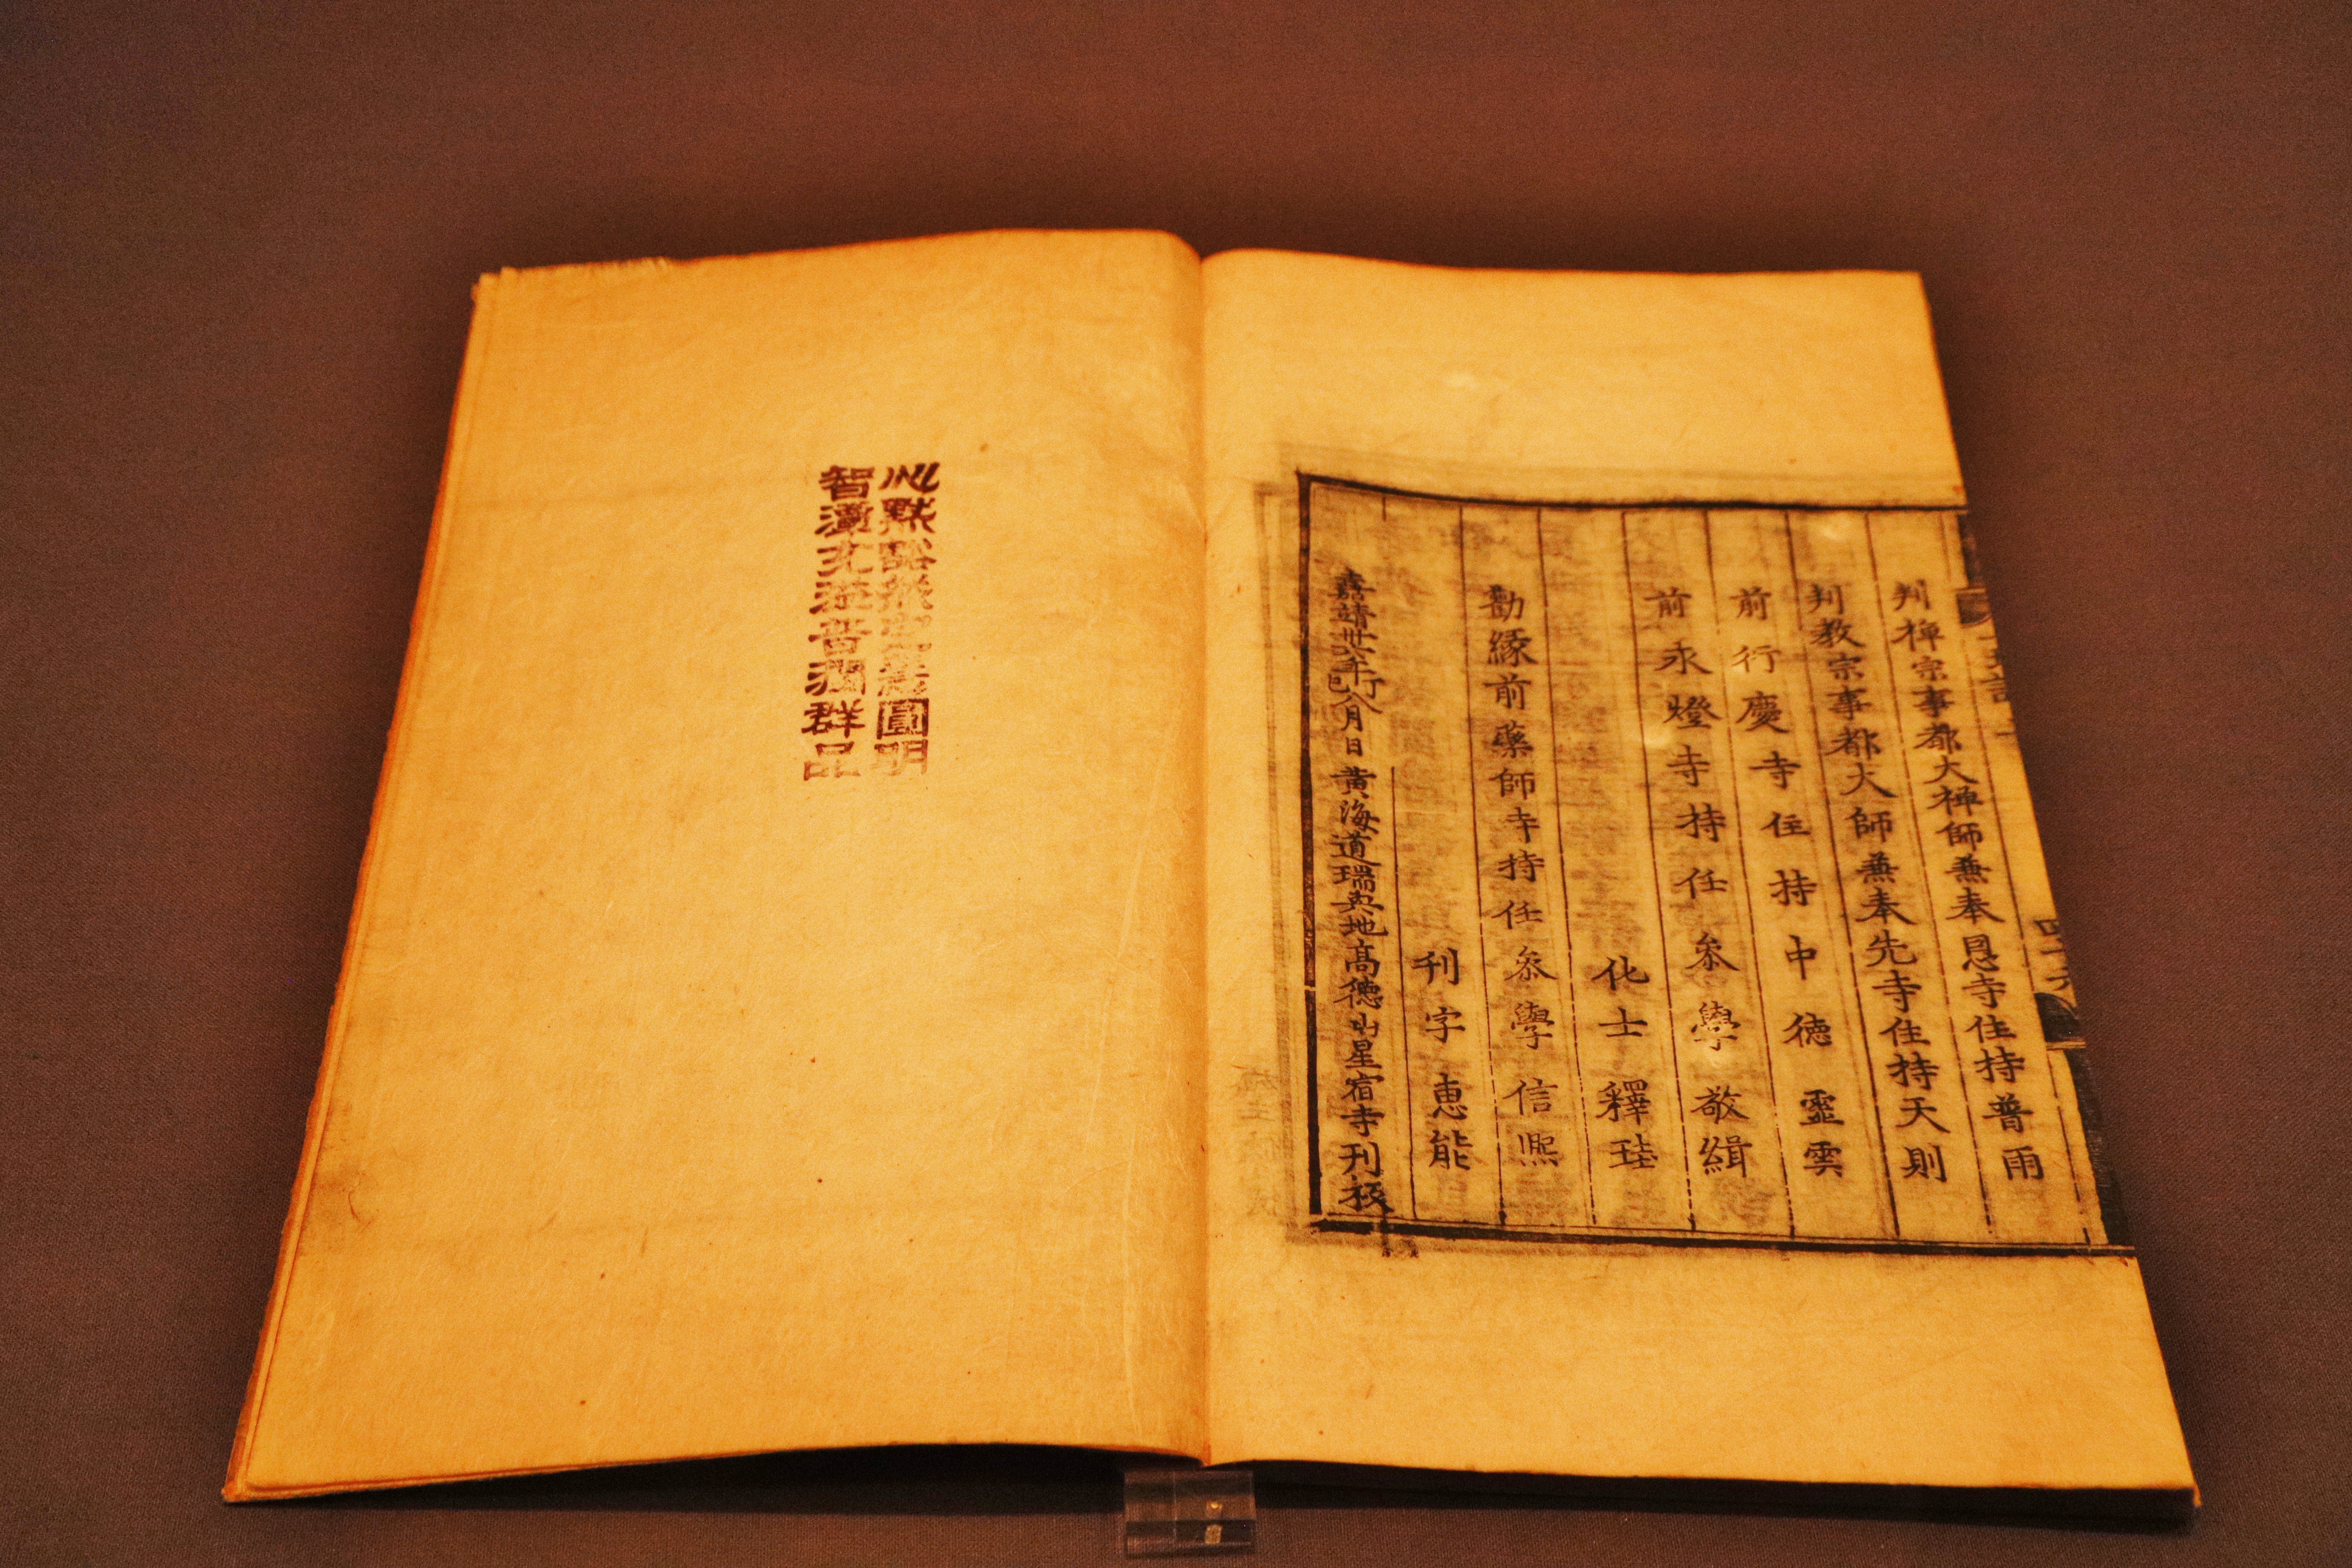 判禪宗事都大禪師兼奉恩寺住持普雨
判教宗事都大師兼奉先寺住持天則
前行慶寺住持中德靈雲
前永燈寺持任叅學敬緝
化士釋珪
勸緣前藥師寺持任叅學信熙
刊字惠能
嘉靖卅八年己八月日黃海道瑞興地高德山星宿寺刊板
心默圓明
智普潤群品